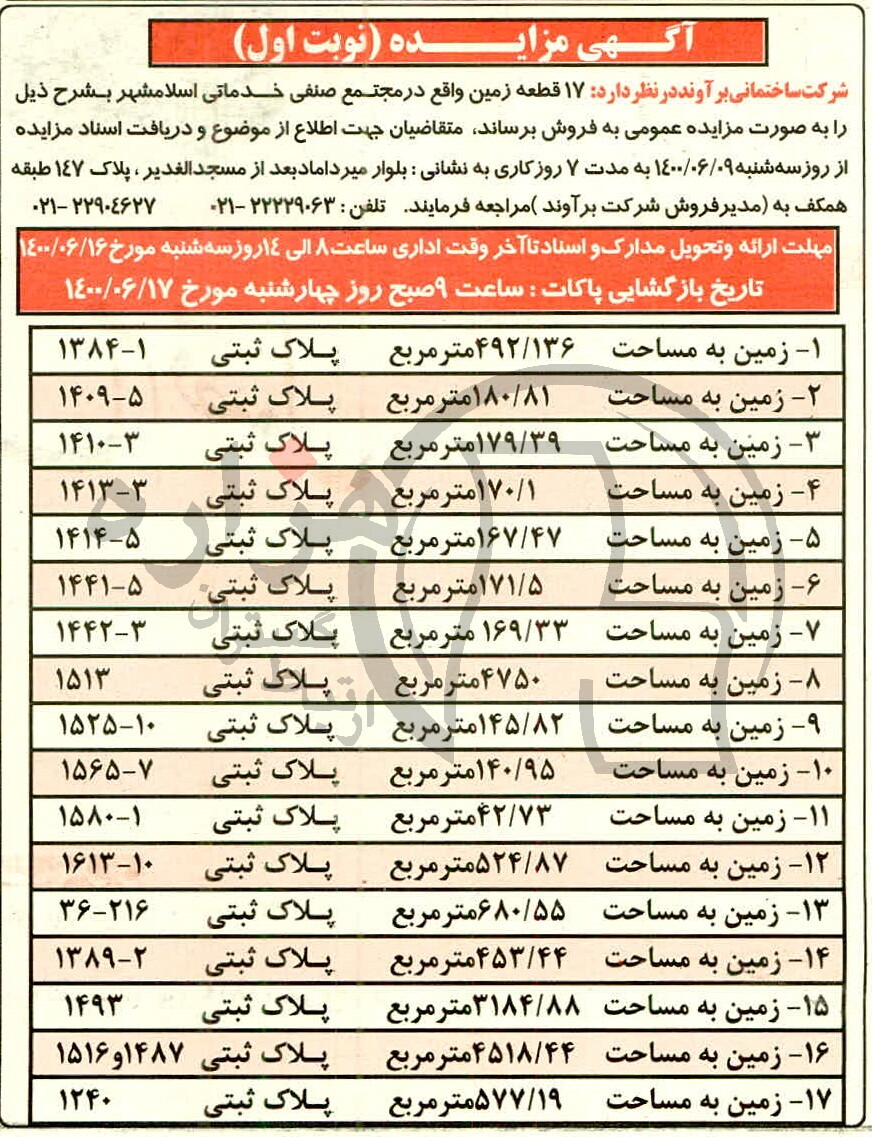 آگهی مزایده (نوبت اول)
شرکت ساختمانی برآوند در نظر دارد: ۱۷ قطعه زمین واقع در مجتمع صنفی خدماتی اسلامشهر بشرح ذیل
را به صورت مزایده عمومی به فروش برساند، متقاضیان جهت اطلاع از موضوع و دریافت اسناد مزایده
از روز سه‌شنبه ۱۴۰۰/۰۶/۰۹ به مدت ۷ روز کاری به نشانی : بلوار میرداماد بعد از مسجد الغدیر ، پلاک ۱۴۷ طبقه
همکف به (مدیر فروش شرکت برآوند )مراجعه فرمایند. تلفن : ۲۲۲۲۹۰۶۳ -۰۲۱ ۲۲۹۰۴۶۲۷ -۰۲۱
مهلت ارائه وتحویل مدارک و اسناد تا آخر وقت اداری ساعت ۸ الی ۱۴ روز سه شنبه مورخ ۱۴۰۰/۰۶/۱۶
تاریخ بازگشایی پاکات : ساعت ۹ صبح روز چهارشنبه مورخ ۱۴۰۰/۰۶/۱۷
۱- زمین به مساحت ۴۹۲/۱۳۶مترمربع پلاک ثبتی ۱۳۸۴-۱
۲- زمین به مساحت ۱۸۰/۸۱مترمربع پلاک ثبتی ۱۴۰۹-۵
۳- زمین به مساحت ۱۷۹/۳۹مترمربع پلاک ثبتی ۱۴۱۰-۳
۴- زمین به مساحت ۱۷۰/۱مترمربع پلاک ثبتی ۱۴۱۳-۳
۵- زمین به مساحت ۱۶۷/۴۷مترمربع پلاک ثبتی ۱۴۱۴-۵
۶- زمین به مساحت ۱۷۱/۵مترمربع پلاک ثبتی ۱۴۴۱-۵
۷- زمین به مساحت ۱۶۹/۳۳ مترمربع پلاک ثبتی ۱۴۴۲-۳
۸- زمین به مساحت ۴۷۵۰مترمربع پلاک ثبتی ۱۵۱۳
۹- زمین به مساحت ۱۴۵/۸۲مترمربع پلاک ثبتی ۱۵۲۵-۱۰
۱۰- زمین به مساحت ۱۴۰/۹۵مترمربع پلاک ثبتی ۱۵۶۵-۷
۱۱- زمین به مساحت ۴۲/۷۳مترمربع پلاک ثبتی ۱۵۸۰-۱
۱۲- زمین به مساحت ۵۲۴/۸۷مترمربع پلاک ثبتی ۱۶۱۳-۱۰
۱۳- زمین به مساحت ۶۸۰/۵۵مترمربع پلاک ثبتی ۳۶-۲۱۶
۱۴- زمین به مساحت ۴۵۳/۴۴مترمربع پلاک ثبتی ۱۳۸۹-۲
۱۵- زمین به مساحت ۳۱۸۴/۸۸مترمربع پلاک ثبتی ۱۴۹۳
۱۶- زمین به مساحت ۴۵۱۸/۴۴مترمربع پلاک ثبتی ۱۴۸۷و۱۵۱۶
۱۷- زمین به مساحت ۵۷۷/۱۹مترمربع پلاک ثبتی ۱۲۴۰
هزاره